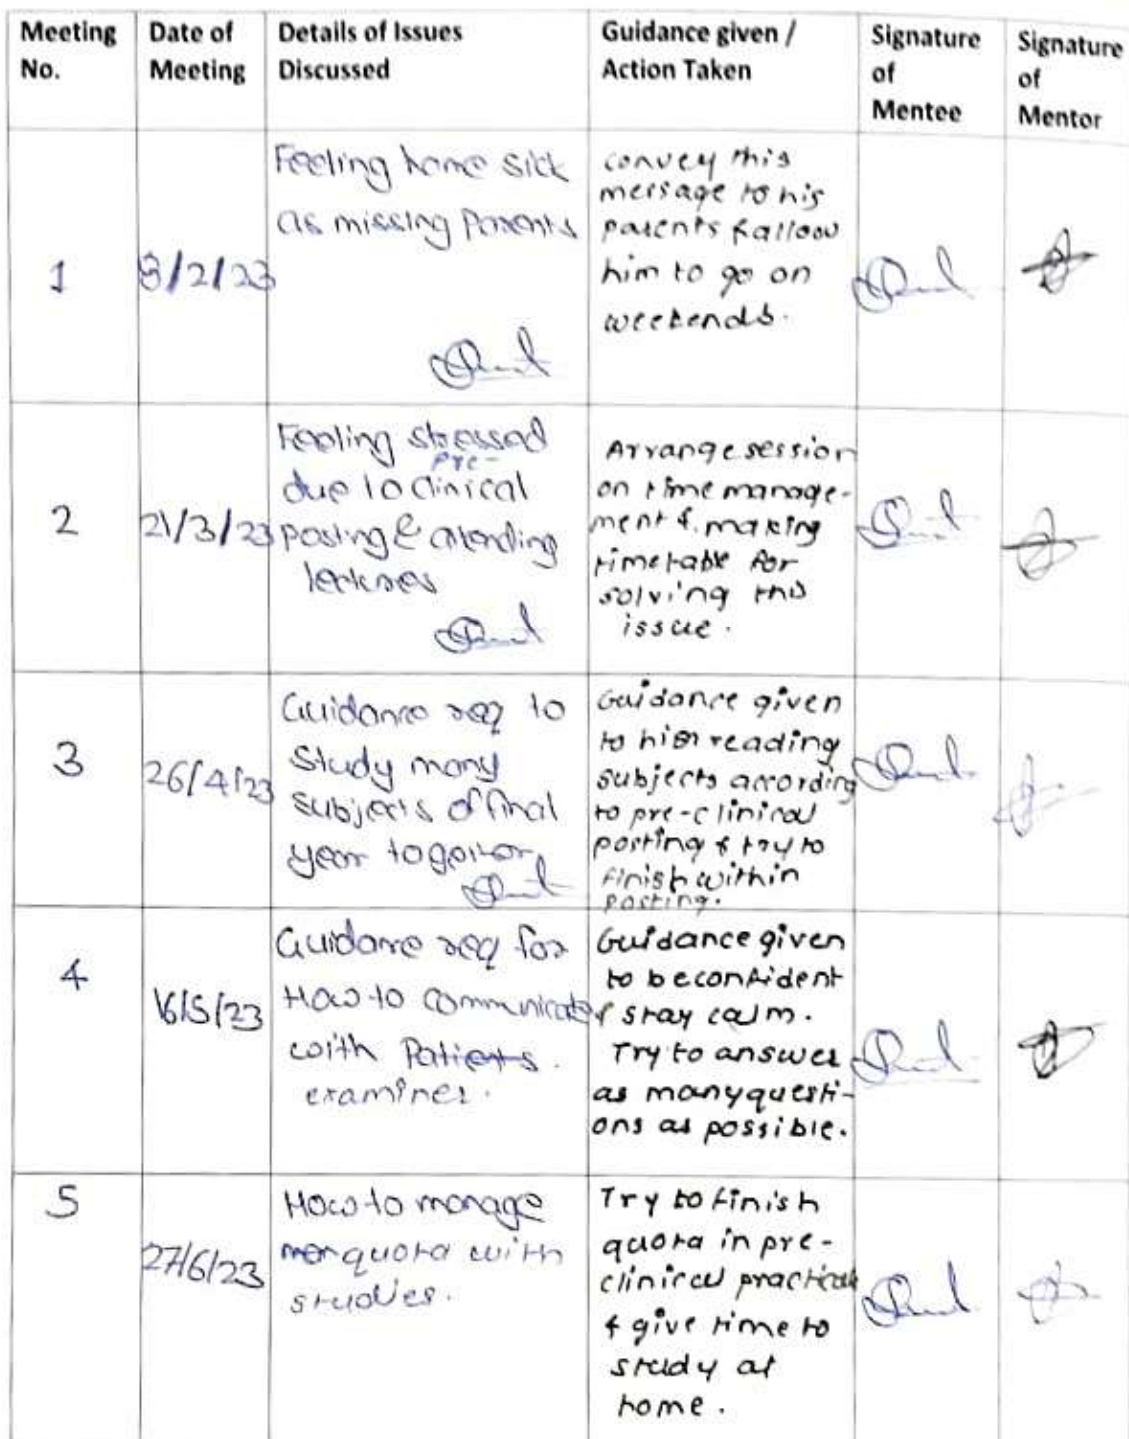 Meeting No.
Date of Meeting
Details of Issues Discussed
Guidance given / Action Taken
Signature of Mentee
Signature of Mentor
1
8/2/23
Feeling home sick
as missing Parents
convey this
message to his
parents & allow
him to go on
weekends.
2
21/3/23
Feeling stressed
pre-
due to clinical
posting & attending
lectures
Arrange session
on time manage-
ment & making
timetable for
solving this
issue.
3
26/4/23
Guidance req to
study many
subjects of final
year together
Guidance given
to him reading
subjects according
to pre-clinical
posting & try to
finish within
posting.
4
16/5/23
Guidance req for
How to communicate
with Patients.
examiner.
Guidance given
to be confident
& stay calm.
Try to answer
as many questi-
ons as possible.
5
27/6/23
How to manage
quota with
studies.
Try to finish
quota in pre-
clinical practical
& give time to
study at
home.